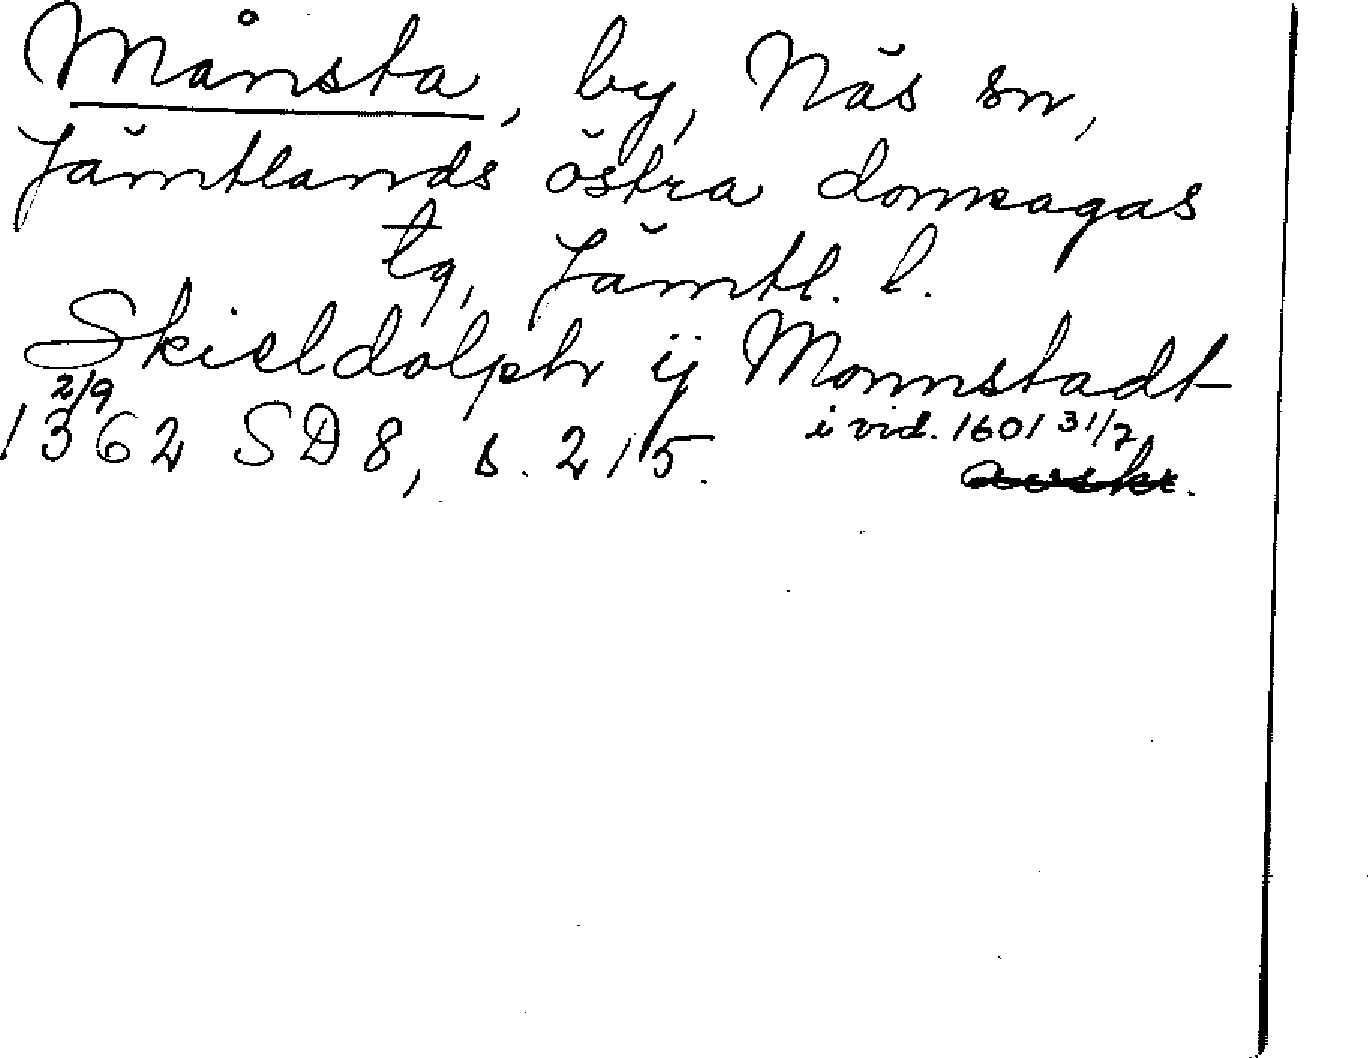 Månsta, by, Näs sn,
Jämtlands östra domsagas
tg, Jämtl. l.
Skieldolph ij Monnstadt
2/9
1362 SD 8, s. 215. i vid. 1601 31/7
avskr.